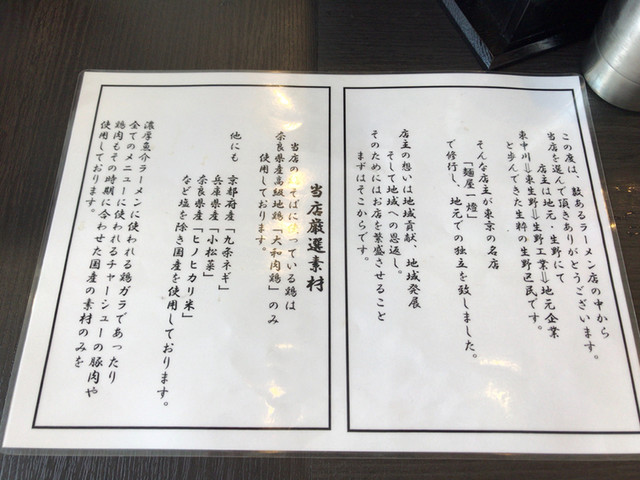 この度は、数あるラーメン店の中から
当店を選んで頂きありがとうございます。
店主は地元・生野にて
東中川⇒東生野⇒生野工業⇒地元企業
と歩んできた生粋の生野区民です。
そんな店主が東京の名店
「麺屋一燈」
で修行し、地元での独立を致しました。
店主の想いは地域貢献、地域発展
そして地域への恩返し。
そのためにはお店を繁盛させること
まずはそこからです。
当店厳選素材
当店の そばに使っている鶏は
奈良県産高級地鶏「大和肉鶏」のみ
使用しております。
他にも 京都府産「九条ネギ」
兵庫県産「小松菜」
奈良県産「ヒノヒカリ米」
など塩を除き国産を使用しております。
濃厚魚介ラーメンに使われる鶏ガラであったり
全てのメニューに使われるチャーシューの豚肉や
鶏肉もその時期に合わせた国産の素材のみを
使用しております。